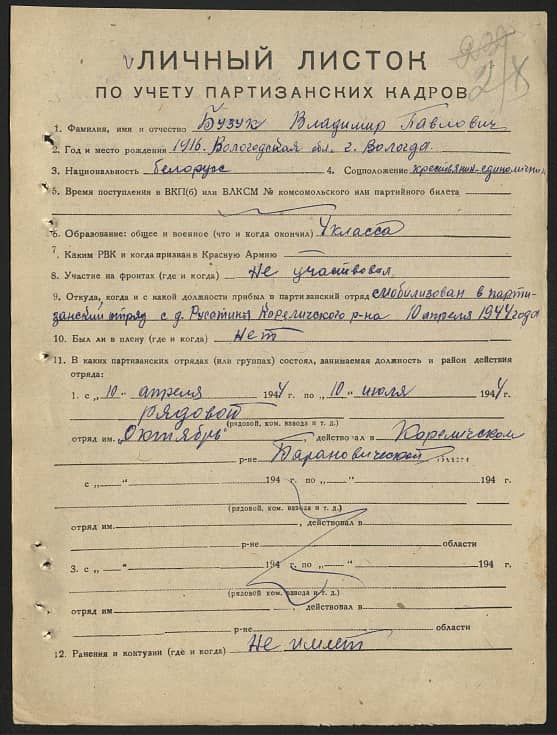 ЛИЧНЫЙ ЛИСТОК
ПО УЧЕТУ ПАРТИЗАНСКИХ КАДРОВ
1. Фамилия, имя и отчество Бузук Владимир Павлович
2. Год и место рождения 1916. Вологодская обл. г. Вологда
3. Национальность белорус 4. Соцположение крестьянин-единоличн.
5. Время поступления в ВКП(б) или ВЛКСМ № комсомольского или партийного билета
6. Образование: общее и военное (что и когда окончил) 4 класса
7. Каким РВК и когда призван в Красную Армию
8. Участие на фронтах (где и когда) Не участвовал
9. Откуда, когда и с какой должности прибыл в партизанский отряд смобилизован в парти-
занский отряд с д. Русатины Кореличского р-на 10 апреля 1944 года
10. Был ли в плену (где и когда) Нет
11. В каких партизанских отрядах (или группах) состоял, занимаемая должность и район действия
отряда:
1. с „10“ апреля 1944 г. по „10“ июля 1944 г.
рядовой
(рядовой, ком. взвода и т. д.)
отряд им. „Октябрь“, действовал в Кореличском
р-не Барановической области
с „ “ 194 г. по „ “ 194 г.
(рядовой, ком. взвода и т. д.)
отряд им. , действовал в
р-не области
3. с „ “ 194 г. по „ “ 194 г.
(рядовой, ком. взвода и т. д.)
отряд им , действовал в
р-не области
12. Ранения и контузии (где и когда) Не имеет